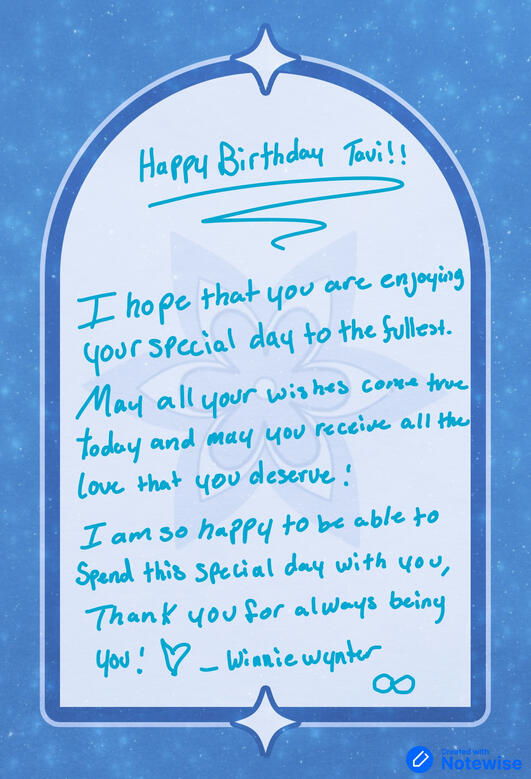 Happy Birthday Tavi!!
I hope that you are enjoying
your special day to the fullest.
May all your wishes come true
today and may you receive all the
love that you deserve!
I am so happy to be able to
Spend this special day with you,
Thank you for always being
you! ♡ – Winniewynter
∞
Created with
Notewise